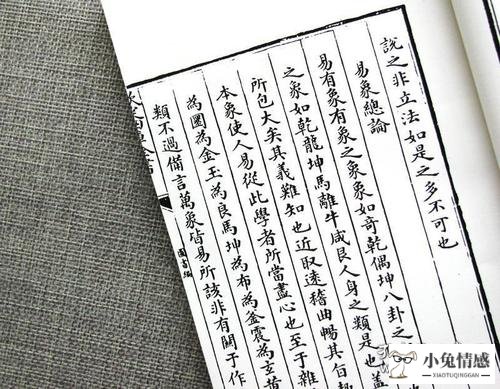 說之非立法如是之多不可也
易象總論
易有象有象之象象如奇乾偶坤八卦之
之象如乾龍坤馬離牛咸艮人身之類是也
所包大矣其義難知也近取遠稽曲暢其
本象使人易從此學者所當盡心也至于雜
為圜為金玉為良馬坤為布為釜震為玄黃
類不過備言萬象皆易所該非有關于作
圖書編
小兔情感
XIAOTUQINGGAN